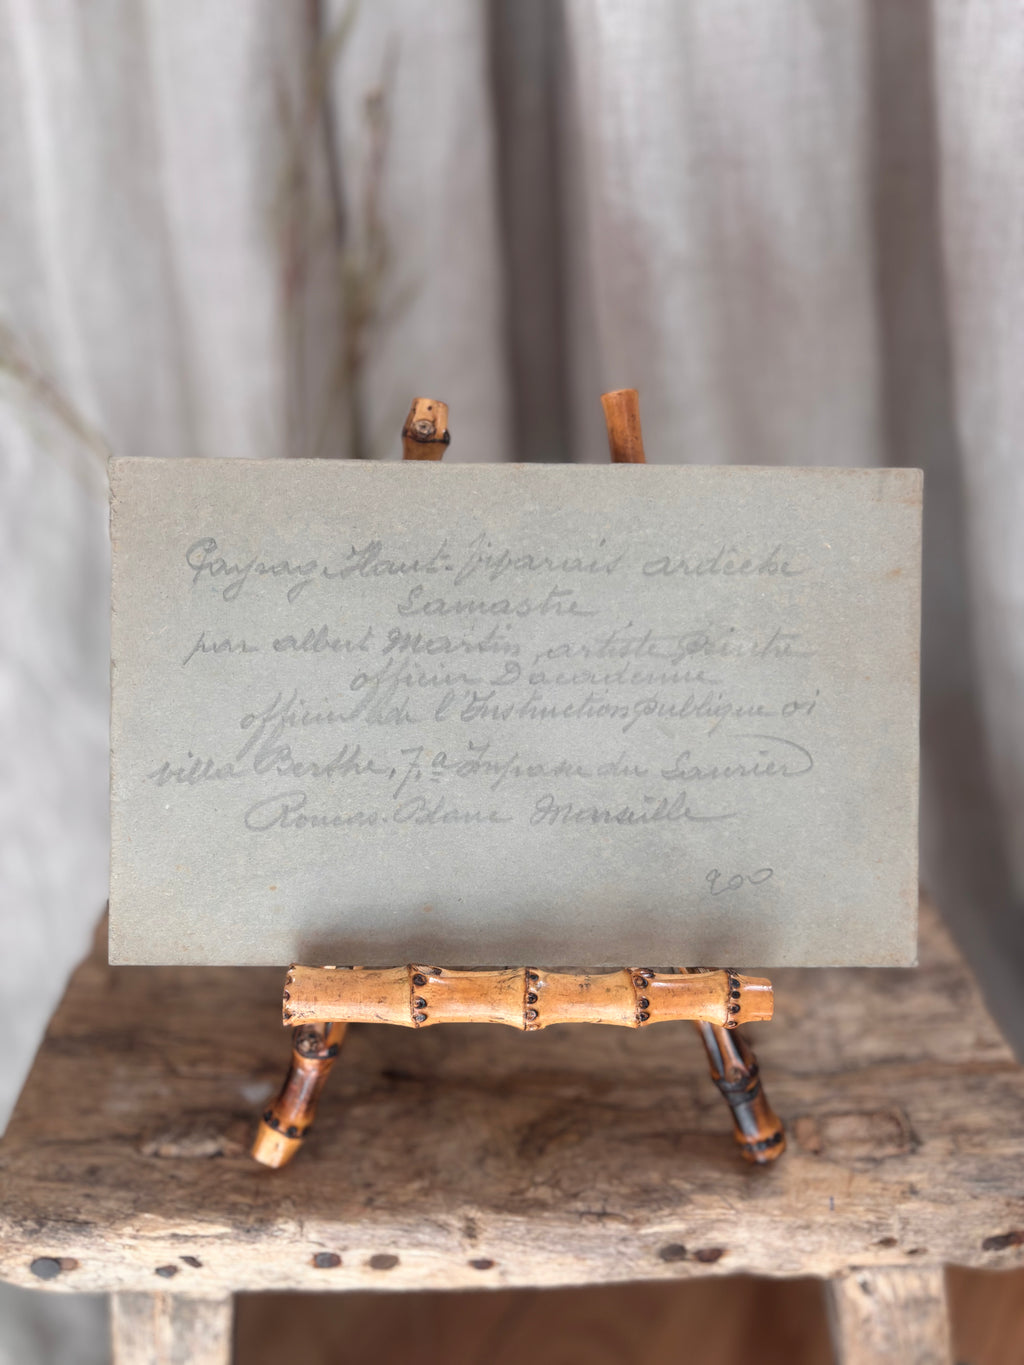 Paysag Haut-Vivarais ardèche
Lamastre
par albert Martin, artiste peintre
officier D academie
officier de l'Instruction publique oi
villa Berthe, 7, a Impasse du Laurier
Roucas-Blanc Marseille
900